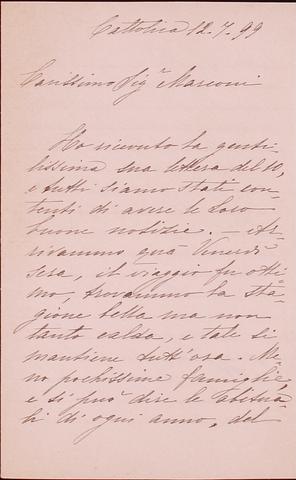 Cattolica 12.7.99
Carissimo Sigr Marconi
Ho ricevuto la genti-
lissima sua lettera del 10,
e tutti siamo state con-
tenti di avere le loro
buone notizie. — Ar-
rivammo quà Venerdì
sera, il viaggio fu otti-
mo, trovammo la sta-
gione bella ma non
tanto calda, e tale si
mantiene tutt'ora.
no pochissime famiglie,
e si può dire le abitua-
li di ogni anno, del